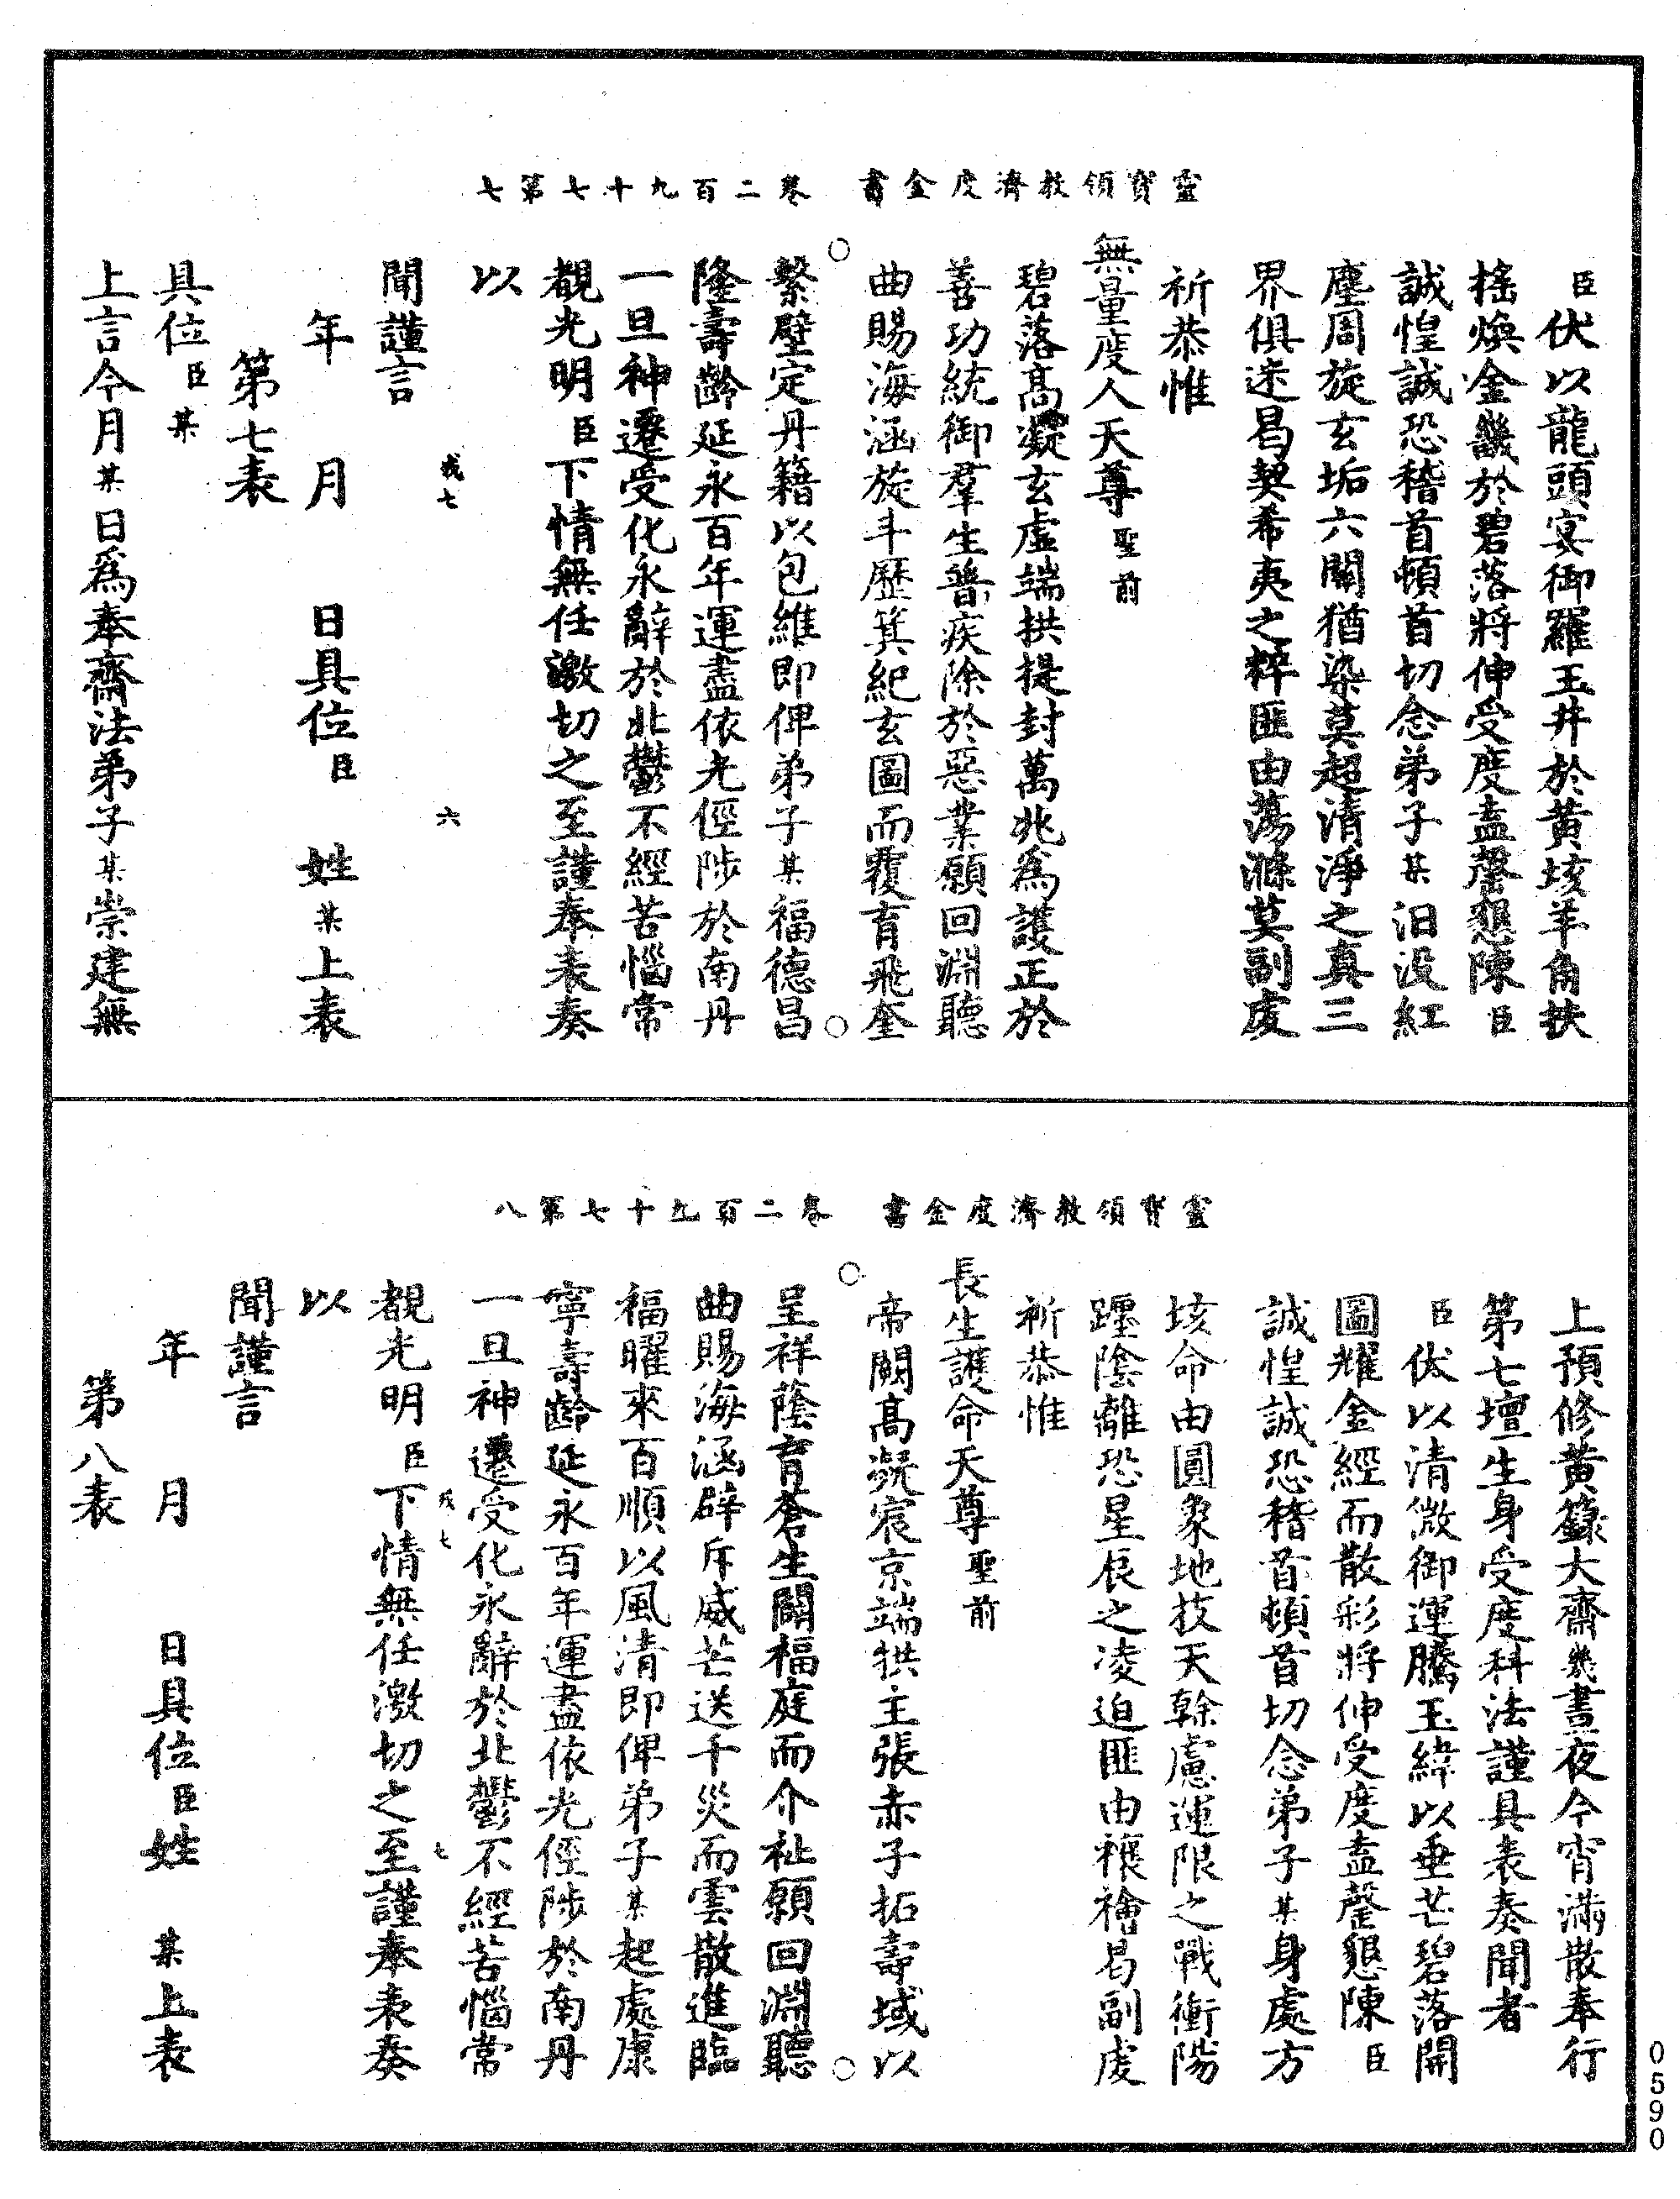 靈寶領教濟度金書　卷二百九十七第七
臣伏以龍頭宴御羅玉井於黃垓羊角扶
搖煥金畿於碧落將伸受度盍罄懇陳臣
誠惶誠恐稽首頓首切念弟子某汨没紅
塵周旋玄垢六關猶染莫超清淨之真三
界俱迷曷契希夷之粹匪由蕩滌莫副虔
祈恭惟
無量度人天尊聖前
碧落高凝玄虛端拱提封萬兆爲護正於
善功統御羣生普疾除於惡業願回淵聽
曲賜海涵旋斗歷箕紀玄圖而覆育飛奎
繫壁定丹籍以包維即俾弟子某福德昌
隆壽齡延永百年運盡依光徑陟於南丹
一旦神遷受化永辭於北鬱不經苦惱常
覩光明臣下情無任激切之至謹奉表奏
以
聞謹言
戎七　六
年　月　日具位臣　姓某上表
第七表
具位臣某
上言今月某日爲奉齋法弟子某崇建無
靈寶領教濟度金書　卷二百九十七第八
上預修黃籙大齋幾晝夜今宵滿散奉行
第七壇生身受度科法謹具表奏聞者
臣伏以清微御運騰玉緯以垂芒碧落開
圖耀金經而散彩將伸受度盍罄懇陳臣
誠惶誠恐稽首頓首切念弟子某身處方
垓命由圓象地技天幹慮運限之戰衝陽
躔陰離恐星辰之凌迫匪由禳禬曷副虔
祈恭惟
長生護命天尊聖前
帝闕高凝宸京端拱主張赤子拓壽域以
呈祥蔭育蒼生闢福庭而介祉願回淵聽
曲賜海涵辟斥威芒送千災而雲散進臨
福曜來百順以風清即俾弟子某起處康
寧壽齡延永百年運盡依光徑陟於南丹
一旦神遷受化永辭於北鬱不經苦惱常
戎七　七
覩光明臣下情無任激切之至謹奉表奏
以
聞謹言
年　月　日具位臣姓　某上表
第八表
0590